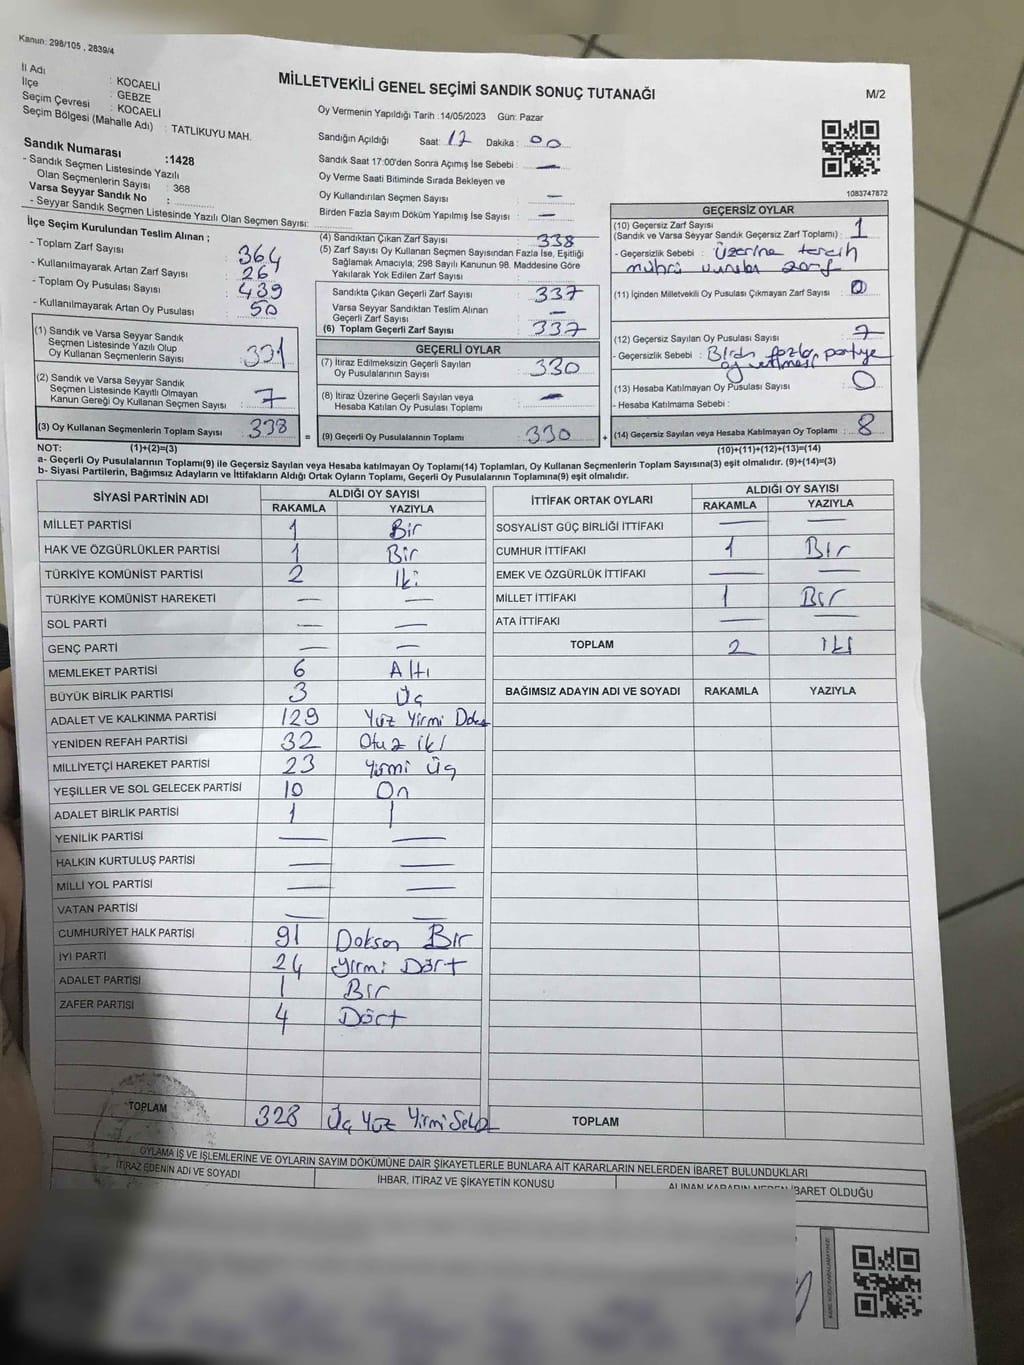 Kanun: 298/105 , 2839/4
MİLLETVEKİLİ GENEL SEÇİMİ SANDIK SONUÇ TUTANAĞI
M/2
İl Adı : KOCAELİ
İlçe : GEBZE
Seçim Çevresi : KOCAELİ
Seçim Bölgesi (Mahalle Adı) : TATLIKUYU MAH.
Sandık Numarası :1428
- Sandık Seçmen Listesinde Yazılı
Olan Seçmenlerin Sayısı : 368
Varsa Seyyar Sandık No :
- Seyyar Sandık Seçmen Listesinde Yazılı Olan Seçmen Sayısı:
Oy Vermenin Yapıldığı Tarih :14/05/2023 Gün: Pazar
Sandığın Açıldığı Saat: 17 Dakika : 00
Sandık Saat 17:00'den Sonra Açımış İse Sebebi : —
Oy Verme Saati Bitiminde Sırada Bekleyen ve
Oy Kullandırılan Seçmen Sayısı : —
Birden Fazla Sayım Döküm Yapılmış İse Sayısı : —
1083747872
İlçe Seçim Kurulundan Teslim Alınan ;
- Toplam Zarf Sayısı : 364
- Kullanılmayarak Artan Zarf Sayısı : 26
- Toplam Oy Pusulası Sayısı : 439
- Kullanılmayarak Artan Oy Pusulası : 50
(1) Sandık ve Varsa Seyyar Sandık
Seçmen Listesinde Yazılı Olup
Oy Kullanan Seçmenlerin Sayısı : 331
(2) Sandık ve Varsa Seyyar Sandık
Seçmen Listesinde Kayıtlı Olmayan
Kanun Gereği Oy Kullanan Seçmen Sayısı : 7
(3) Oy Kullanan Seçmenlerin Toplam Sayısı : 338
(4) Sandıktan Çıkan Zarf Sayısı : 338
(5) Zarf Sayısı Oy Kullanan Seçmen Sayısından Fazla İse, Eşitliği
Sağlamak Amacıyla, 298 Sayılı Kanunun 98. Maddesine Göre
Yakılarak Yok Edilen Zarf Sayısı :
Sandıkta Çıkan Geçerli Zarf Sayısı : 337
Varsa Seyyar Sandıktan Teslim Alınan
Geçerli Zarf Sayısı : —
(6) Toplam Geçerli Zarf Sayısı : 337
GEÇERLİ OYLAR
(7) İtiraz Edilmeksizin Geçerli Sayılan
Oy Pusulalarının Sayısı : 330
(8) İtiraz Üzerine Geçerli Sayılan veya
Hesaba Katılan Oy Pusulası Toplamı : —
= (9) Geçerli Oy Pusulalarının Toplamı : 330
GEÇERSİZ OYLAR
(10) Geçersiz Zarf Sayısı : 1
(Sandık ve Varsa Seyyar Sandık Geçersiz Zarf Toplamı)
- Geçersizlik Sebebi : üzerine tercih
mührü vurulan zarf
(11) İçinden Milletvekili Oy Pusulası Çıkmayan Zarf Sayısı : 0
(12) Geçersiz Sayılan Oy Pusulası Sayısı : 7
- Geçersizlik Sebebi : Birden fazla partiye
oy verilmesi
(13) Hesaba Katılmayan Oy Pusulası Sayısı : 0
- Hesaba Katılmama Sebebi :
+ (14) Geçersiz Sayılan veya Hesaba Katılmayan Oy Toplamı : 8
NOT: (1)+(2)=(3)
(10)+(11)+(12)+(13)=(14)
a- Geçerli Oy Pusulalarının Toplamı(9) ile Geçersiz Sayılan veya Hesaba katılmayan Oy Toplamı(14) Toplamları, Oy Kullanan Seçmenlerin Toplam Sayısına(3) eşit olmalıdır. (9)+(14)=(3)
b- Siyasi Partilerin, Bağımsız Adayların ve İttifakların Aldığı Ortak Oyların Toplamı, Geçerli Oy Pusulalarının Toplamına(9) eşit olmalıdır.
SİYASİ PARTİNİN ADI ALDIĞI OY SAYISI
RAKAMLA YAZIYLA
MİLLET PARTİSİ 1 Bir
HAK VE ÖZGÜRLÜKLER PARTİSİ 1 Bir
TÜRKİYE KOMÜNİST PARTİSİ 2 İki
TÜRKİYE KOMÜNİST HAREKETİ — —
SOL PARTİ — —
GENÇ PARTİ — —
MEMLEKET PARTİSİ 6 Altı
BÜYÜK BİRLİK PARTİSİ 3 Üç
ADALET VE KALKINMA PARTİSİ 129 Yüz Yirmi Dokuz
YENİDEN REFAH PARTİSİ 32 Otuz iki
MİLLİYETÇİ HAREKET PARTİSİ 23 Yirmi Üç
YEŞİLLER VE SOL GELECEK PARTİSİ 10 On
ADALET BİRLİK PARTİSİ 1 1
YENİLİK PARTİSİ — —
HALKIN KURTULUŞ PARTİSİ — —
MİLLİ YOL PARTİSİ — —
VATAN PARTİSİ — —
CUMHURİYET HALK PARTİSİ 91 Doksan Bir
İYİ PARTİ 24 Yirmi Dört
ADALET PARTİSİ 1 Bir
ZAFER PARTİSİ 4 Dört
TOPLAM 328 Üç Yüz Yirmi Sekiz
İTTİFAK ORTAK OYLARI ALDIĞI OY SAYISI
RAKAMLA YAZIYLA
SOSYALİST GÜÇ BİRLİĞİ İTTİFAKI — —
CUMHUR İTTİFAKI 1 Bir
EMEK VE ÖZGÜRLÜK İTTİFAKI — —
MİLLET İTTİFAKI 1 Bir
ATA İTTİFAKI — —
TOPLAM 2 İki
BAĞIMSIZ ADAYIN ADI VE SOYADI RAKAMLA YAZIYLA
TOPLAM
OYLAMA İŞ VE İŞLEMLERİNE VE OYLARIN SAYIM DÖKÜMÜNE DAİR ŞİKAYETLERLE BUNLARA AİT KARARLARIN NELERDEN İBARET BULUNDUKLARI
İTİRAZ EDENİN ADI VE SOYADI İHBAR, İTİRAZ VE ŞİKAYETİN KONUSU ALINAN KARARIN NEDEN İBARET OLDUĞU